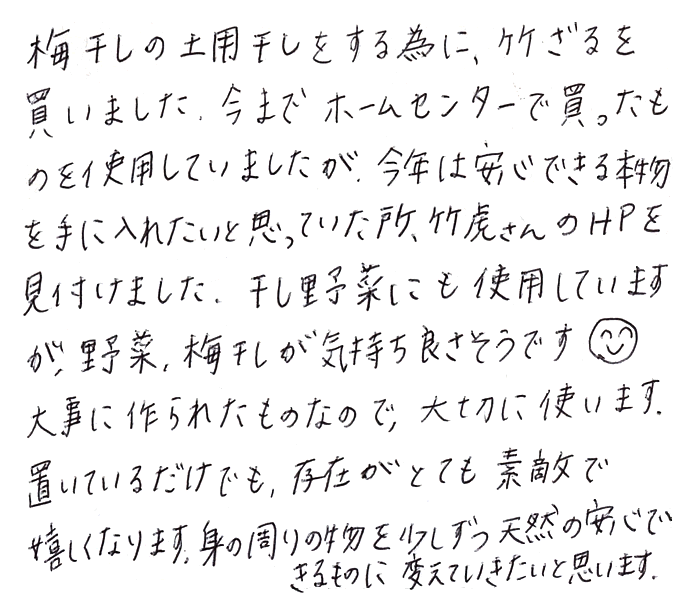 梅干しの土用干しをする為に、竹ざるを
買いました。今までホームセンターで買ったも
のを使用していましたが、今年は安心できる本物
を手に入れたいと思っていた所、竹虎さんのHPを
見付けました。干し野菜にも使用しています
が、野菜、梅干しが気持ち良さそうです
大事に作られたものなので、大切に使います。
置いているだけでも、存在がとても素敵で
嬉しくなります。身の周りの物を少しずつ天然の安心で
きるものに変えていきたいと思います。